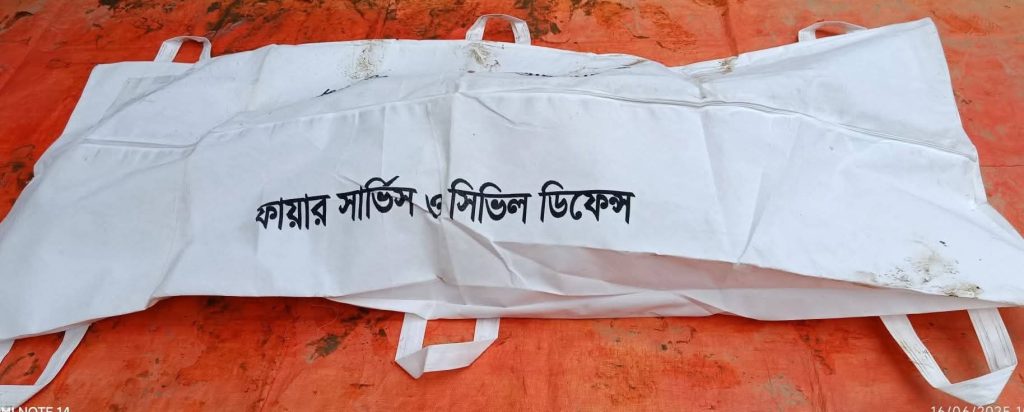 ফায়ার সার্ভিস ও সিভিল ডিফেন্স
MI NOTE 14
16/06/2025 1